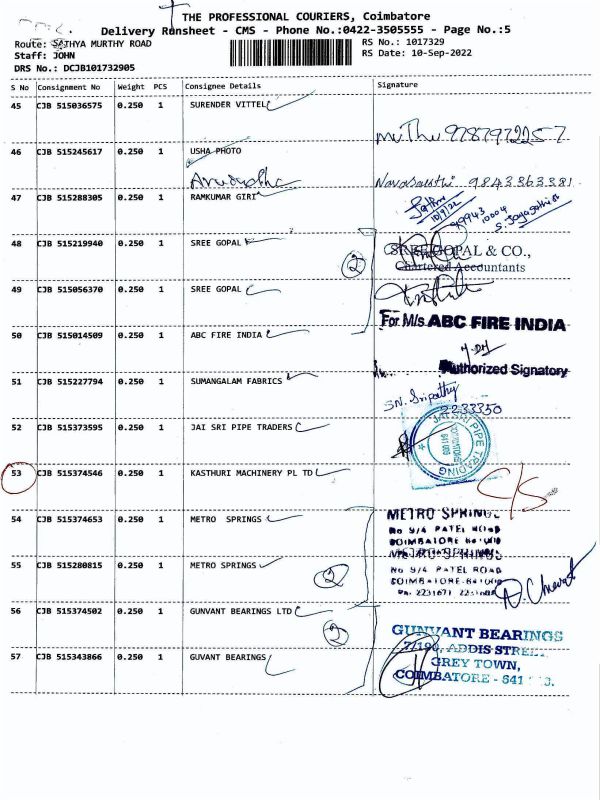 THE PROFESSIONAL COURIERS, Coimbatore
Delivery Runsheet - CMS - Phone No.:0422-3505555 - Page No.:5
Route: SATHYA MURTHY ROAD
RS No.: 1017329
Staff: JOHN
RS Date: 10-Sep-2022
DRS No.: DCJB101732905
S No Consignment No Weight PCS Consignee Details Signature
45 CJB 515036575 0.250 1 SURENDER VITTEL
9787972257
46 CJB 515245617 0.250 1 USHA PHOTO
9843363381
47 CJB 515288305 0.250 1 RAMKUMAR GIRI
10/9/22
99943 10004
48 CJB 515219940 0.250 1 SREE GOPAL
2
SREE GOPAL & CO.,
Chartered Accountants
49 CJB 515056370 0.250 1 SREE GOPAL
For M/s ABC FIRE INDIA
50 CJB 515014509 0.250 1 ABC FIRE INDIA
Authorized Signatory
51 CJB 515227794 0.250 1 SUMANGALAM FABRICS
SN. Sripathy
2233350
52 CJB 515373595 0.250 1 JAI SRI PIPE TRADERS
JAI SRI PIPE TRADING
53 CJB 515374546 0.250 1 KASTHURI MACHINERY PL TD
C/S
54 CJB 515374653 0.250 1 METRO SPRINGS
METRO SPRINGS
No 9/4 PATEL ROAD
COIMBATORE
METRO SPRINGS
55 CJB 515280815 0.250 1 METRO SPRINGS
2
No 9/4 PATEL ROAD
COIMBATORE-641009
Ph. 2231671
56 CJB 515374502 0.250 1 GUNVANT BEARINGS LTD
2
GUNVANT BEARINGS
7/190, ADDIS STREET,
57 CJB 515343866 0.250 1 GUVANT BEARINGS
GREY TOWN,
COIMBATORE - 641